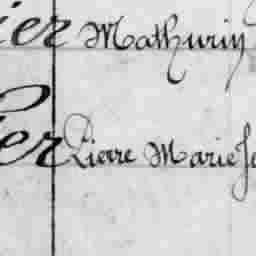 ier Mathurin
ier Pierre Marie Je